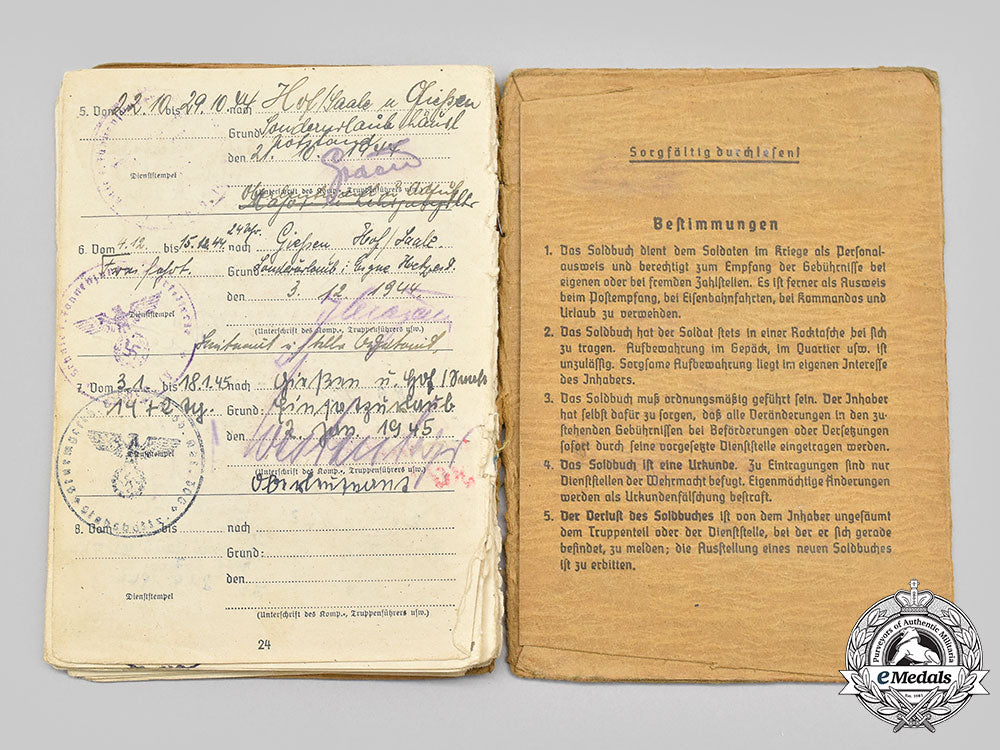 5. Vom 22.10 bis 29.10.44 nach Hof/Saale u Gießen
Grund: Sonderurlaub
den 21. 10. 1944
Dienststempel
(Unterschrift des Komp., Truppenführers usw.)
24 Uhr
6. Vom 4.12. bis 15.12.44 nach Gießen Hof/Saale
Freifahrt. Grund: Sonderurlaub
den 3. 12. 1944
Dienststempel
(Unterschrift des Komp., Truppenführers usw.)
Leutnant u
7. Vom 3.1. bis 18.1.45 nach Gießen u. Hof/Saale
14+2 Tg. Grund: Einsatzurlaub
den 2. Jan. 1945
Dienststempel
(Unterschrift des Komp., Truppenführers usw.)
Oberleutnant
8. Vom bis nach
Grund:
den
Dienststempel
(Unterschrift des Komp., Truppenführers usw.)
24
Sorgfältig durchlesen!
Bestimmungen
1. Das Soldbuch dient dem Soldaten im Kriege als Personal-
ausweis und berechtigt zum Empfang der Gebührnisse bei
eigenen oder bei fremden Zahlstellen. Es ist ferner als Ausweis
beim Postempfang, bei Eisenbahnfahrten, bei Kommandos und
Urlaub zu verwenden.
2. Das Soldbuch hat der Soldat stets in einer Rocktasche bei sich
zu tragen. Aufbewahrung im Gepäck, im Quartier usw. ist
unzulässig. Sorgsame Aufbewahrung liegt im eigenen Interesse
des Inhabers.
3. Das Soldbuch muß ordnungsmäßig geführt sein. Der Inhaber
hat selbst dafür zu sorgen, daß alle Veränderungen in den zu-
stehenden Gebührnissen bei Beförderungen oder Versetzungen
sofort durch seine vorgesetzte Dienststelle eingetragen werden.
4. Das Soldbuch ist eine Urkunde. Zu Eintragungen sind nur
Dienststellen der Wehrmacht befugt. Eigenmächtige Änderungen
werden als Urkundenfälschung bestraft.
5. Der Verlust des Soldbuches ist von dem Inhaber ungesäumt
dem Truppenteil oder der Dienststelle, bei der er sich gerade
befindet, zu melden; die Ausstellung eines neuen Soldbuches
ist zu erbitten.
Purveyors of Authentic Militaria
eMedals